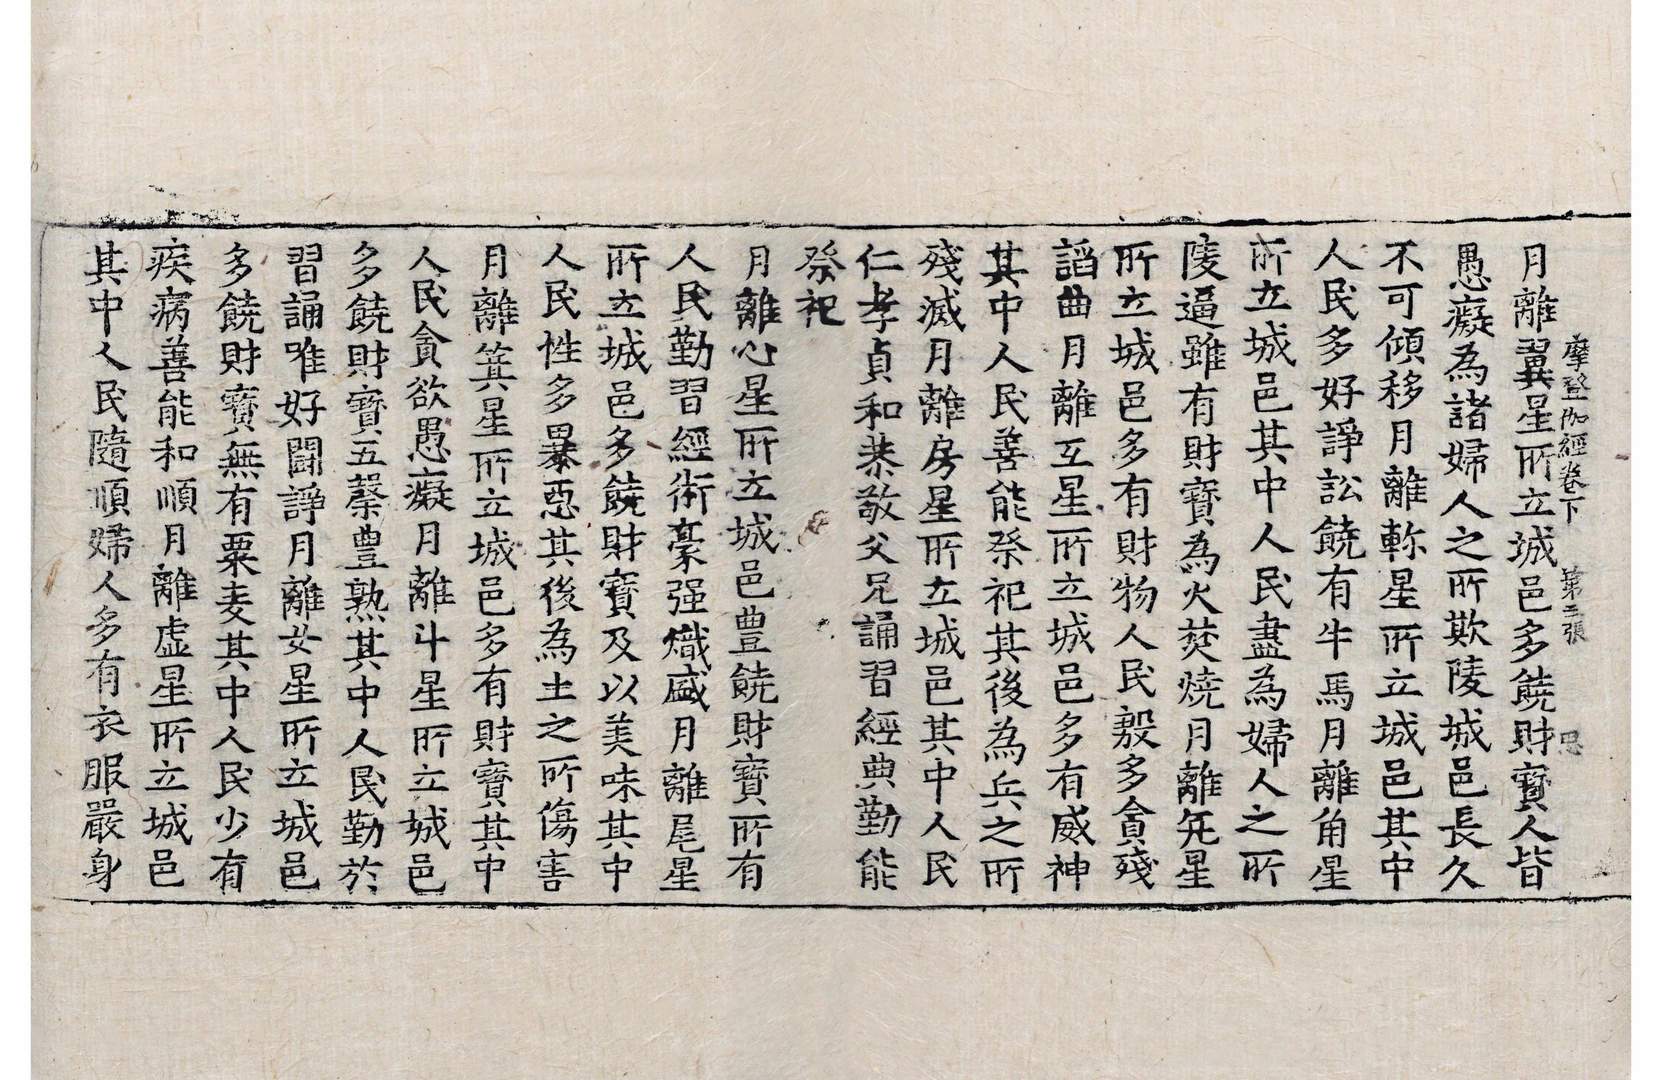 摩登伽經卷下 第二張 思
月離翼星所立城邑多饒財寶人皆
愚癡為諸婦人之所欺陵城邑長久
不可傾移月離軫星所立城邑其中
人民多好諍訟饒有牛馬月離角星
所立城邑其中人民盡為婦人之所
陵逼雖有財寶為火焚燒月離亢星
所立城邑多有財物人民㝅多貪殘
謟曲月離互星所立城邑多有威神
其中人民善能祭祀其後為兵之所
殘滅月離房星所立城邑其中人民
仁孝貞和恭敬父兄誦習經典勤能
祭祀
月離心星所立城邑豊饒財寶所有
人民勤習經術豪强熾盛月離尾星
所立城邑多饒財寶及以美味其中
人民性多暴惡其後為土之所傷害
月離箕星所立城邑多有財寶其中
人民貪欲愚癡月離斗星所立城邑
多饒財寶五榖豊熟其中人民勤於
習誦唯好鬪諍月離女星所立城邑
多饒財寶無有粟麦其中人民少有
疾病善能和順月離虛星所立城邑
其中人民隨順婦人多有衣服嚴身